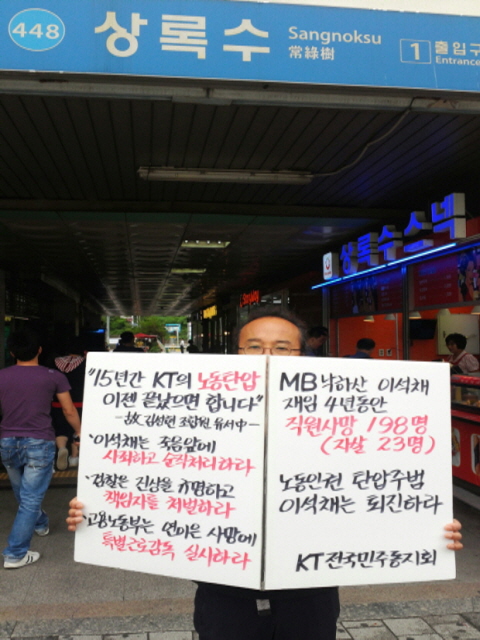 448
상록수
Sangnoksu
常綠樹
1
출입구
Entrance
상록수스넥
"15년간 KT의 노동탄압
이젠 끝났으면 합니다"
-故 김성현 조합원 유서中-
·이석채는 죽음앞에
사죄하고 순직처리하라
·검찰은 진상을 규명하고
책임자를 처벌하라
·고용노동부는 연이은 사망에
특별근로감독 실시하라
MB낙하산 이석채
재임 4년동안
직원사망 198명
(자살 23명)
노동인권 탄압주범
이석채는 퇴진하라
KT전국민주동지회